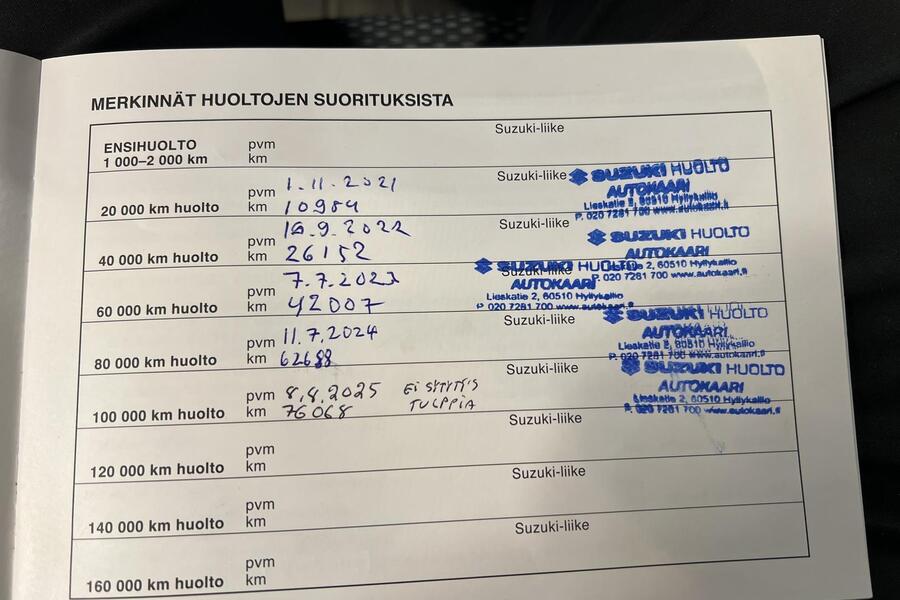 MERKINNÄT HUOLTOJEN SUORITUKSISTA
ENSIHUOLTO
1 000–2 000 km
pvm
km
Suzuki-liike
20 000 km huolto
pvm 1.11.2021
km 10984
Suzuki-liike
SUZUKI HUOLTO
AUTOKAARI
Lieskatie 2, 60510 Hyllykallio
P. 020 7281 700 www.autokaari.fi
40 000 km huolto
pvm 16.9.2022
km 26152
Suzuki-liike
SUZUKI HUOLTO
AUTOKAARI
Lieskatie 2, 60510 Hyllykallio
P. 020 7281 700 www.autokaari.fi
60 000 km huolto
pvm 7.7.2023
km 42007
Suzuki-liike
SUZUKI HUOLTO
AUTOKAARI
Lieskatie 2, 60510 Hyllykallio
P 020 7281 700 www.autokaari.fi
80 000 km huolto
pvm 11.7.2024
km 62688
Suzuki-liike
SUZUKI HUOLTO
AUTOKAARI
Lieskatie 2, 60510 Hyllykallio
P. 020 7281 700 www.autokaari.fi
100 000 km huolto
pvm 8.8.2025 EI SYTYTYS
km 76068 TULPPIA
Suzuki-liike
SUZUKI HUOLTO
AUTOKAARI
Lieskatie 2, 60510 Hyllykallio
P. 020 7281 700 www.autokaari.fi
120 000 km huolto
pvm
km
Suzuki-liike
140 000 km huolto
pvm
km
Suzuki-liike
160 000 km huolto
pvm
km
Suzuki-liike